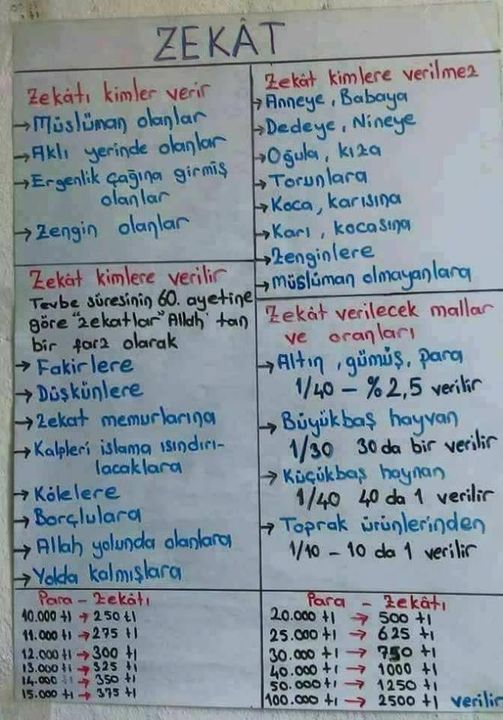 ZEKÂT
Zekâtı kimler verir
→ Müslüman olanlar
→ Aklı yerinde olanlar
→ Ergenlik çağına girmiş
olanlar
→ Zengin olanlar
Zekât kimlere verilir
Tevbe sûresinin 60. ayetine
göre "zekatlar" Allah'tan
bir farz olarak
→ Fakirlere
→ Düşkünlere
→ Zekat memurlarına
→ Kalpleri islama ısındırı-
lacaklara
→ Kölelere
→ Borçlulara
→ Allah yolunda olanlara
→ Yolda kalmışlara
Para - Zekâtı
10.000 tl → 250 tl
11.000 tl → 275 tl
12.000 tl → 300 tl
13.000 tl → 325 tl
14.000 tl → 350 tl
15.000 tl → 375 tl
Zekât kimlere verilmez
→ Anneye, Babaya
→ Dedeye, Nineye
→ Oğula, kıza
→ Torunlara
→ Koca, karısına
→ Karı, kocasına
→ Zenginlere
→ müslüman olmayanlara
Zekât verilecek mallar
ve oranları
→ Altın, gümüş, para
1/40 - %2,5 verilir
→ Büyükbaş hayvan
1/30 30 da bir verilir
→ Küçükbaş haynan
1/40 40 da 1 verilir
→ Toprak ürünlerinden
1/10 - 10 da 1 verilir
Para - Zekâtı
20.000 tl → 500 tl
25.000 tl → 625 tl
30.000 tl → 750 tl
40.000 tl → 1000 tl
50.000 tl → 1250 tl
100.000 tl → 2500 tl verilir